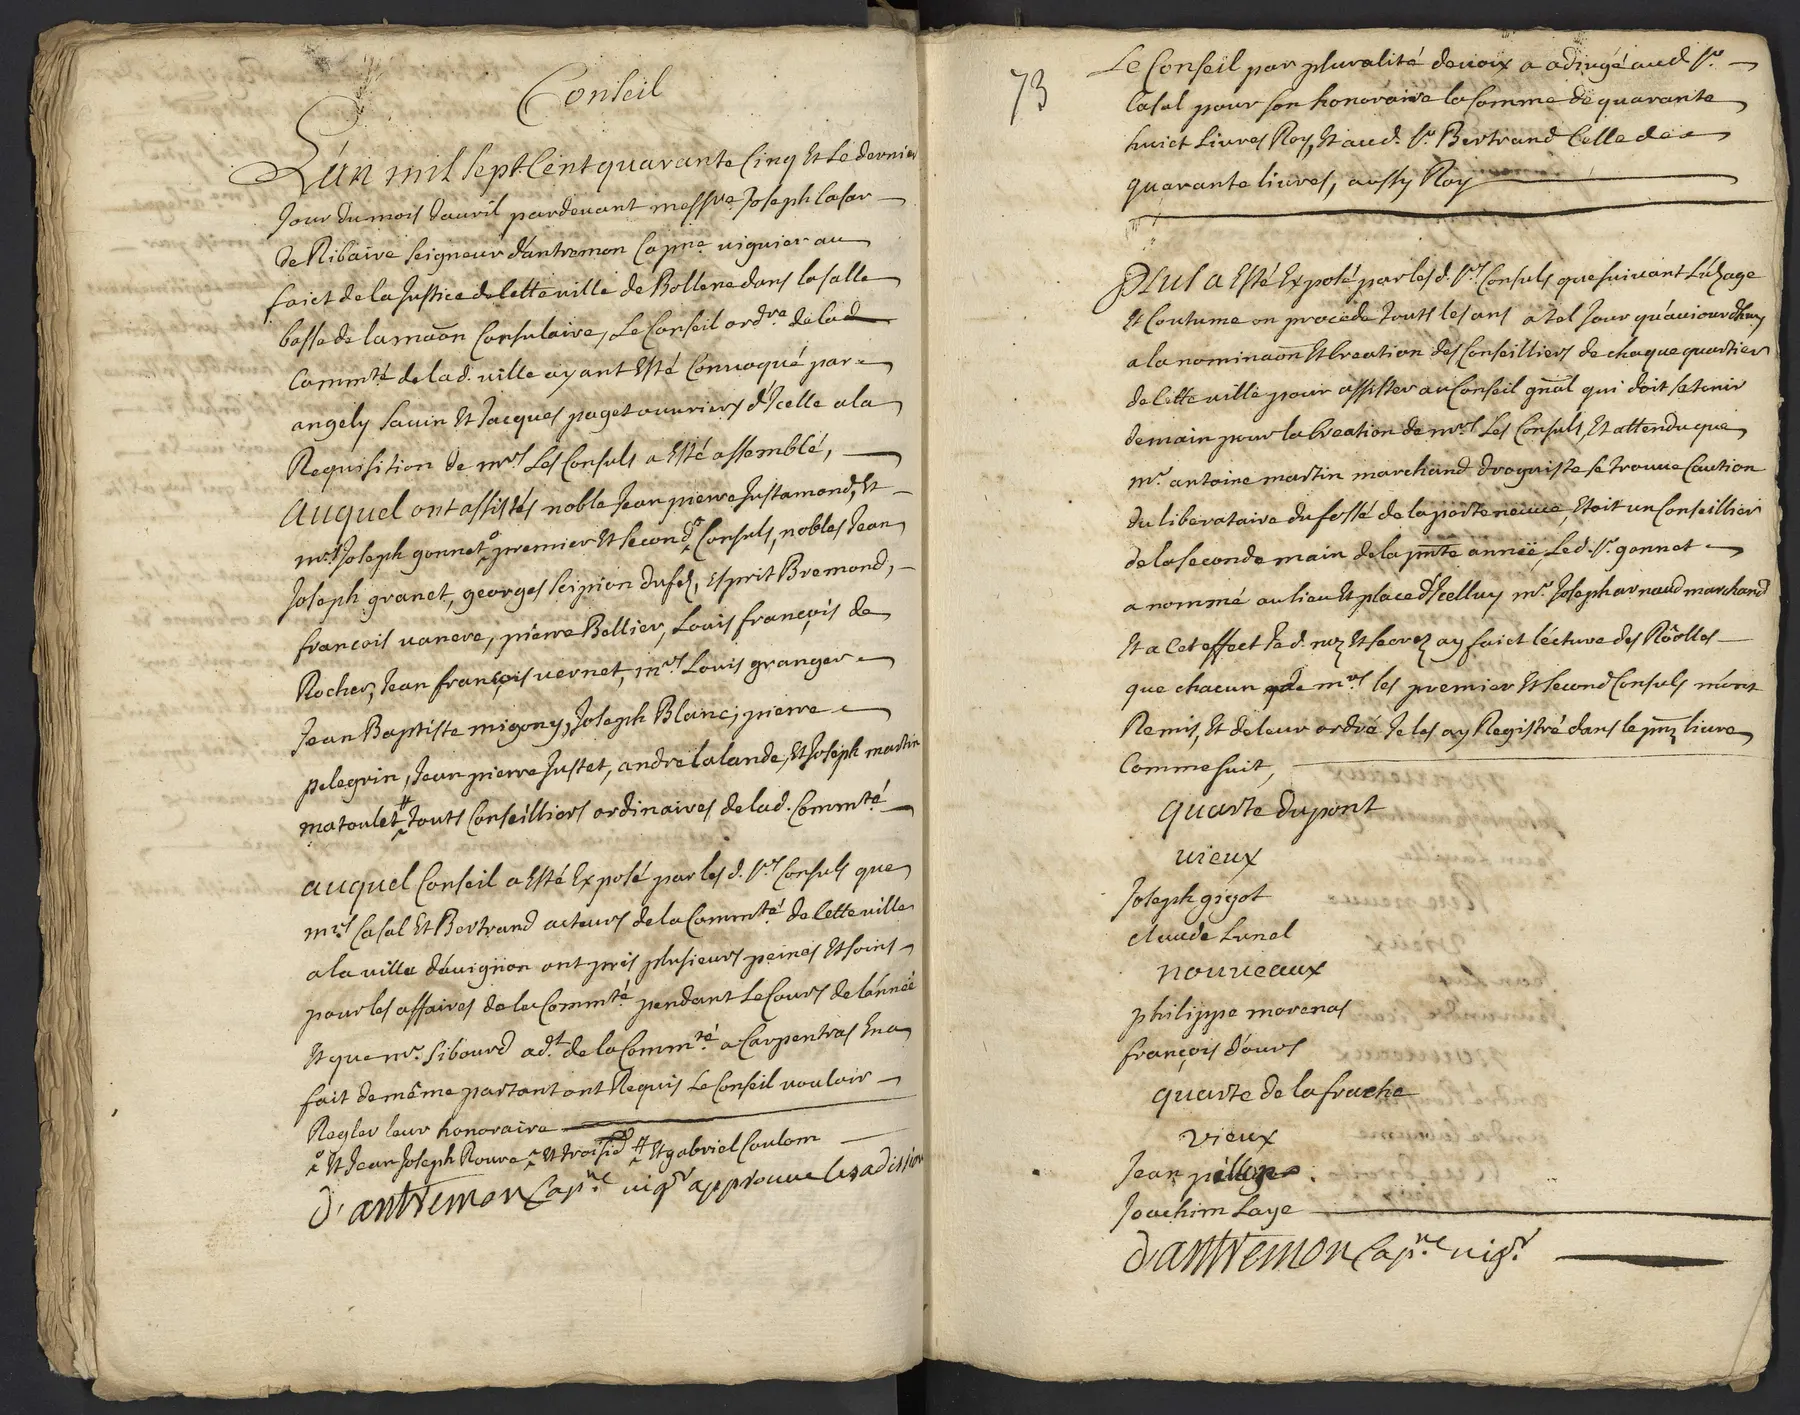 Conseil
L'an mil sept Cent quarante Cinq Et Le dernier
Jour du mois d'avril pardevant messre Joseph Casar
de Ribaire seigneur d'antremon Capne viguier au
faict de la Justice de Cette ville de Bollene dans la salle
basse de la maon Consulaire, Le Conseil ordre de lad
Commté de lad. ville ayant Esté Convoqué par
angely sauin Et Jacques paget ouuriers d'Icelle a la
Requisition de mrs Les Consuls a Esté assemblé,
Auquel ont assistés noble Jean pierre Justamond, Et
mrs Joseph gonnet premier Et second Consuls, nobles Jean
Joseph granet, georges scipion dufes, Esprit Bremond,
françois vanere, pierre Bellier, Louis françois de
Rocher, Jean françois vernet, mrs Louis granger
Jean Baptiste migony, Joseph Blanc, pierre
pelegrin, Jean pierre Justet, andre lalande, Et Joseph martin
matoulet # touts Conseilliers ordinaires de lad. Commté
auquel Conseil a Esté Exposé par les d. srs Consuls que
mrs Casal Et Bertrand acteurs de la Commté de Cette ville
a la ville d'auignon ont pris plusieurs peines Et soins
pour les affaires de la Commté pendant Le Cours de l'année
Et que mr. sibourd adt de la Commté a Carpentras En a
fait de même partant ont Requis Le Conseil vouloir
Regler leur honoraire
o Et Jean Joseph Roure Et troisie # Et gabriel Coulom
d'antremon Capne vigr approuue les adission
73
Le Conseil par pluralité de voix a adiugé aud sr.
Casal pour son honoraire la somme de quarante
huict Livres Roy, Et aud. sr. Bertrand Celle de
quarante livres, aussy Roy
Plus a Esté Exposé par les d. srs Consuls que suivant L'uzage
Et Coutume on procede touts les ans a tel Jour qu'aujourdhuy
a la nominaon Et Creation des Conseilliers de chaque quartier
de Cette ville pour assister au Conseil gnal qui doit se tenir
demain pour la Creation de mrs Les Consuls, Et attendu que
mr. antoine martin marchand droguiste se trouve Caution
du liberataire du fossé de la porte neuve, Etoit un Conseillier
de la seconde main de la pnte année, Led. sr. gonnet
a nommé au lieu Et place d'Icelluy mr. Joseph arnaud marchand
Et a Cet effect Je d. nore Et secre ay faict lécture des Rôolles
que chacun de mrs les premier Et second Consuls m'ont
Remis, Et de leur ordre Je les ay Registré dans le pnt livre
Comme suit,
quarte du pont
vieux
Joseph gigot
claude Lunel
nouveaux
philippe morenas
françois d'ours
quarte de la frache
vieux
Jean
Joachim Laye
d'antremon Capne vigr